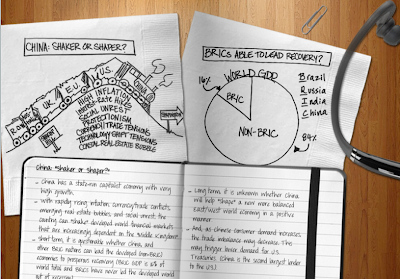 CHINA: SHAKER OR SHAPER?
US
EU
UK
ROW
HIGH INFLATION
INTEREST-RATE HIKES
SOCIAL UNREST
PROTECTIONISM
CURRENCY/TRADE TENSIONS
TECHNOLOGY SHIFT TENSIONS
COASTAL REAL ESTATE BUBBLE
BRICS ABLE TO LEAD RECOVERY?
WORLD GDP
16%
BRIC
NON-BRIC
84%
Brazil
Russia
India
China
China: "Shaker or Shaper?"
- China has a state-run capitalist economy with very
high growth.
- With rapidly rising inflation, currency/trade conflicts,
emerging real estate bubbles, and social unrest, the
country can "shake" developed world financial markets
that are increasingly dependent on the Middle Kingdom.
- Short term, it is questionable whether China and
other BRIC nations can lead the developed (non-BRIC)
economies to prosperous recovery (BRIC GDP is 16% of
world total and BRICs have never led the developed world
out of recession).
- Long term, it is unknown whether China
will help "shape" a new more balanced
East/West world economy in a positive
manner.
- And, as Chinese consumer demand increases,
the trade imbalance may decrease. This
may trigger lower demand for U.S.
Treasurys (China is the second largest lender
to the U.S.)